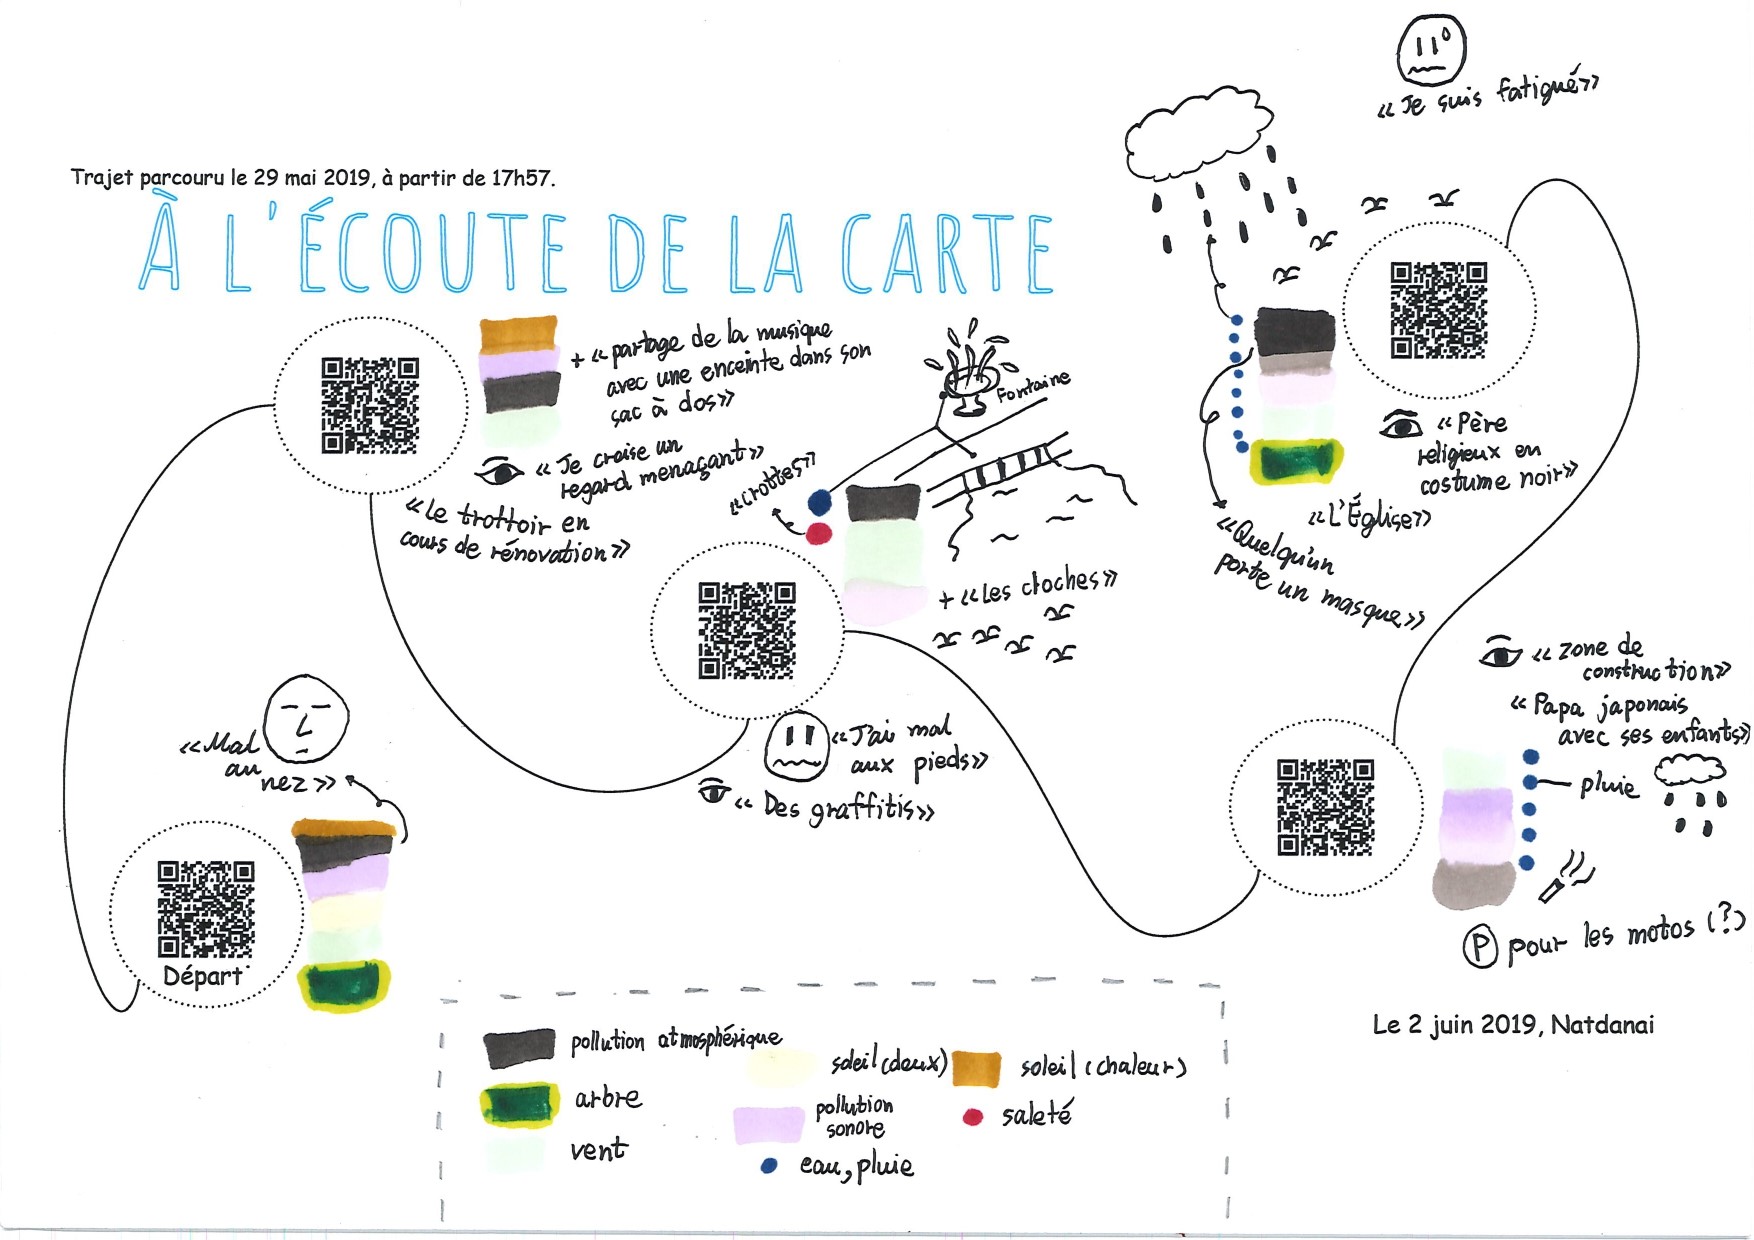 « Je suis fatigué »
Trajet parcouru le 29 mai 2019, à partir de 17h57.
À L'ÉCOUTE DE LA CARTE
+ « partage de la musique
avec une enceinte dans son
sac à dos »
« Je croise un
regard menaçant »
« Le trottoir en
cours de rénovation »
Fontaine
« crottes »
+ « Les cloches »
« J'ai mal
aux pieds »
« Des graffitis »
« Père
religieux en
costume noir »
« L'Église »
« Quelqu'un
porte un masque »
« zone de
construction »
« Papa japonais
avec ses enfants »
pluie
P pour les motos (?)
« Mal
au
nez »
Départ
Le 2 juin 2019, Natdanai
pollution atmosphérique
soleil (doux)
soleil (chaleur)
arbre
pollution
sonore
saleté
vent
eau, pluie